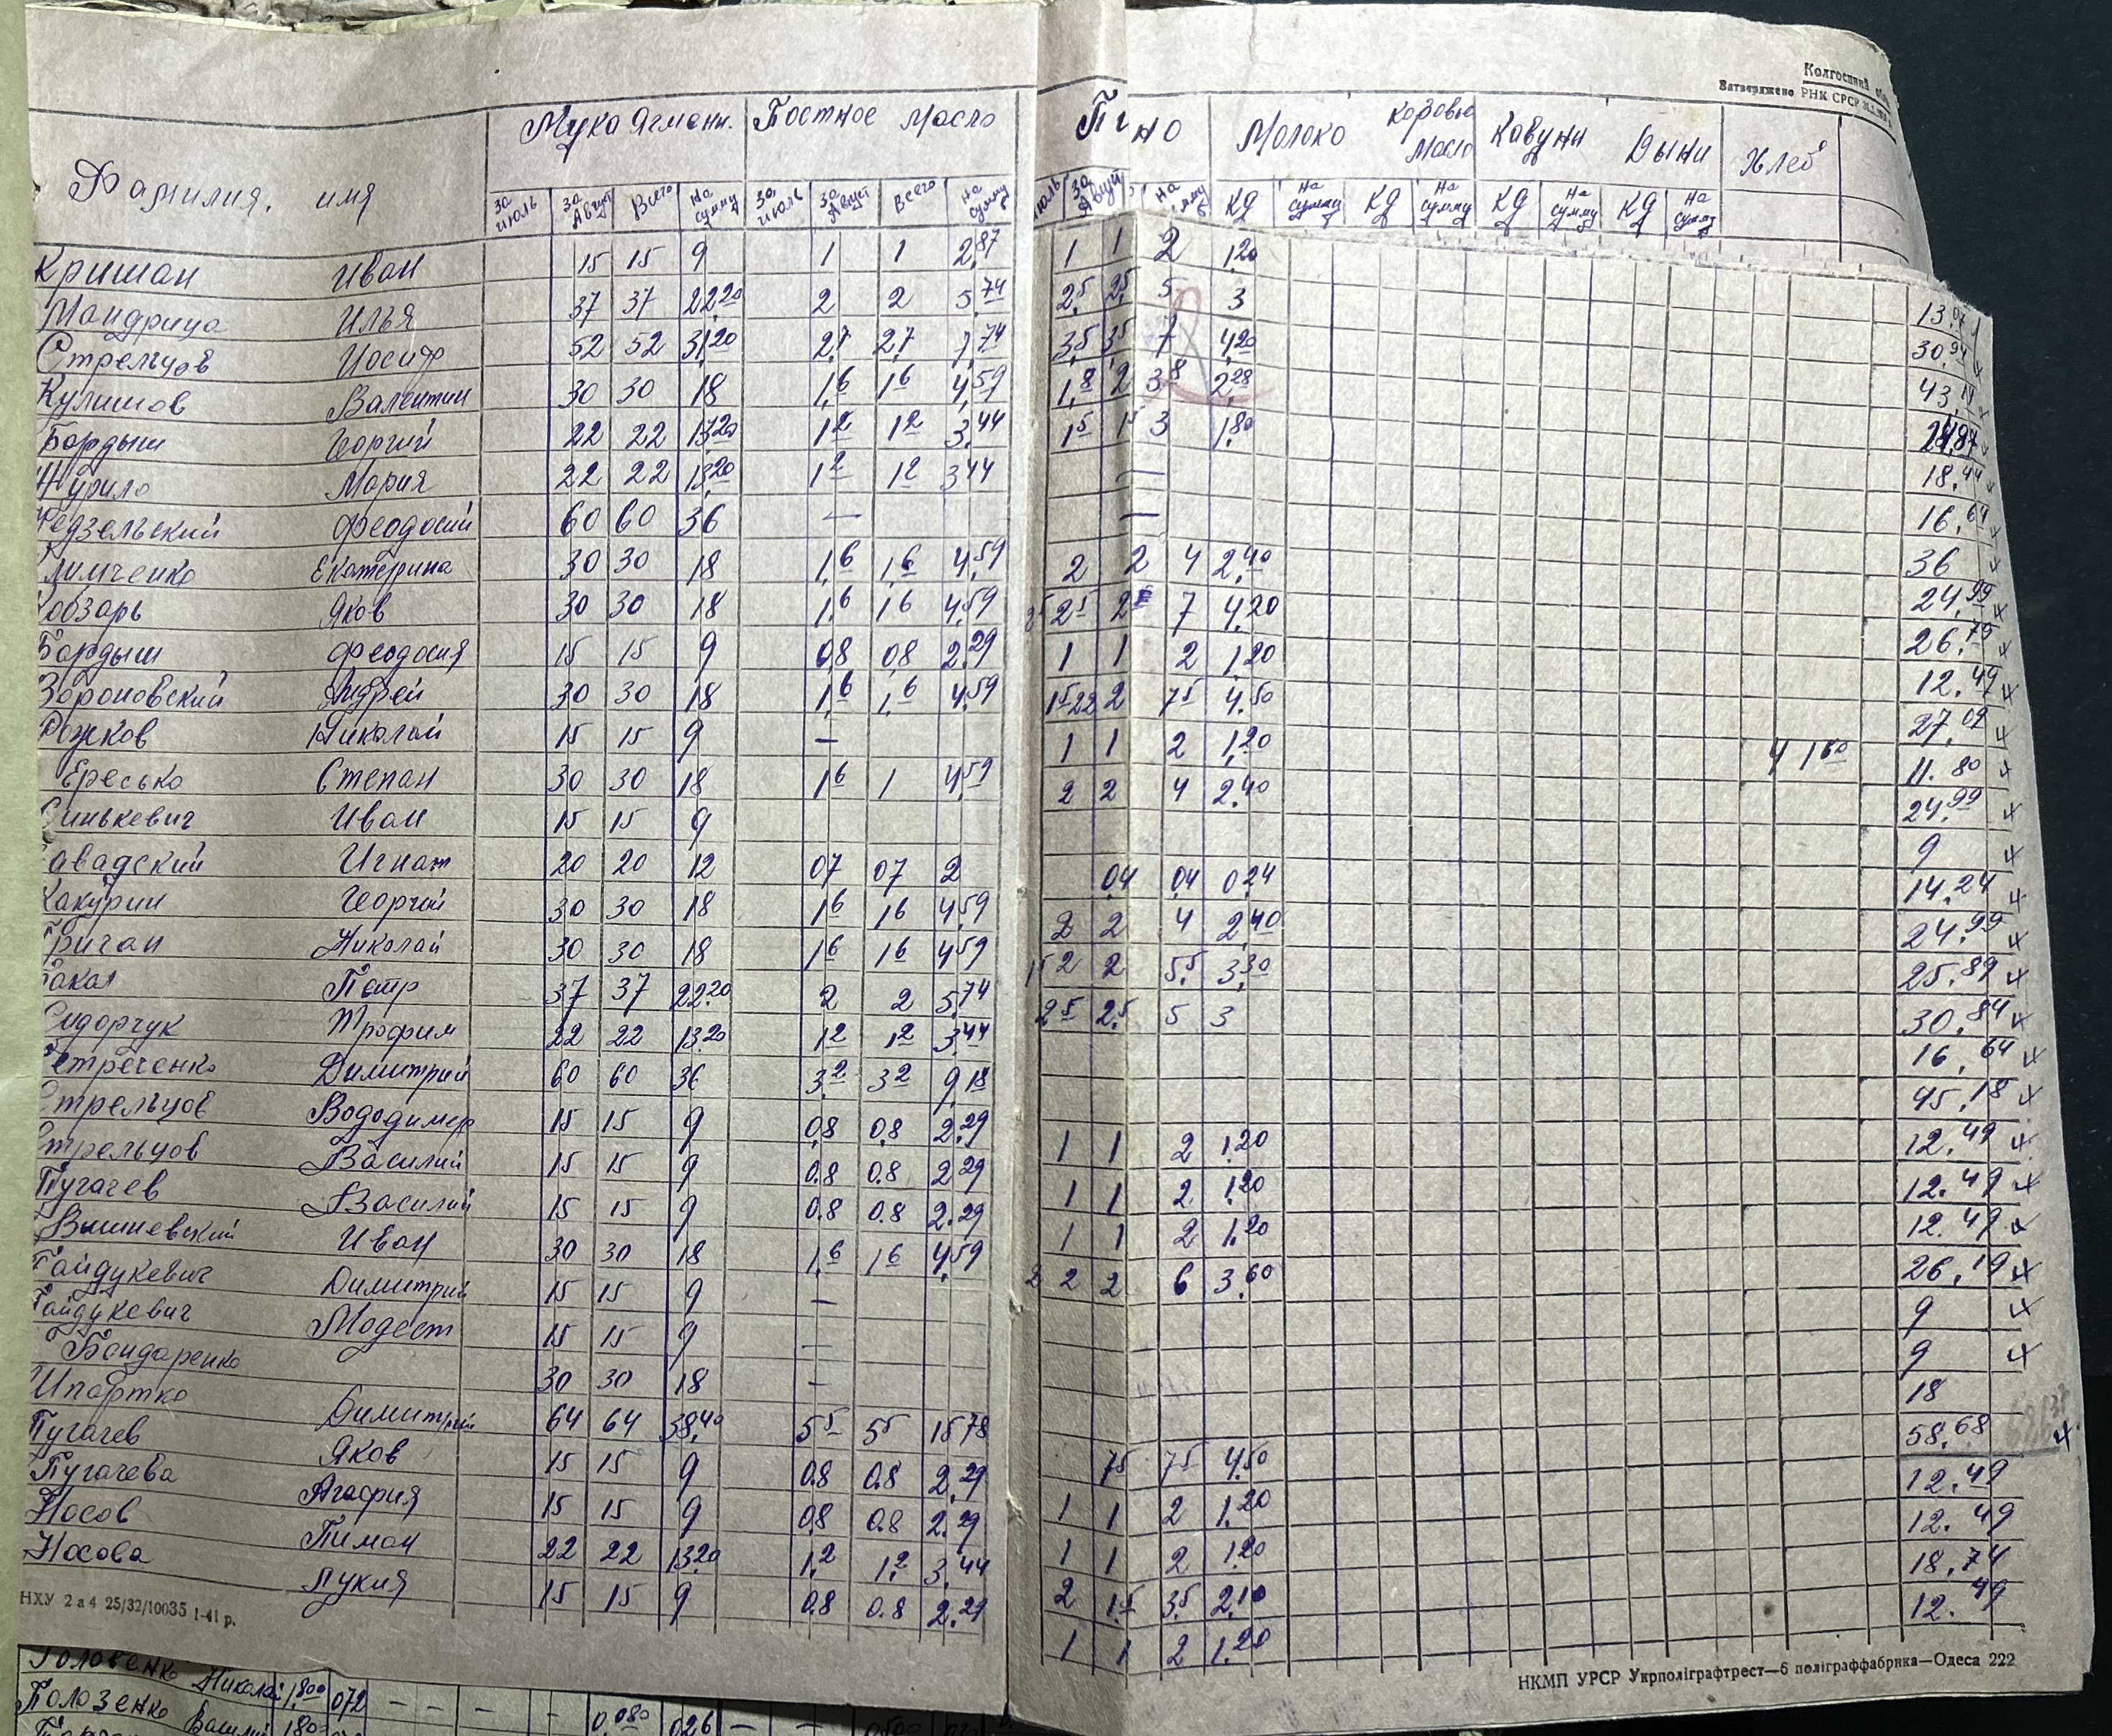 Колгоспний
Затверджено РНК СРСР
Фамилия, имя Мука Ячмени. Постное масло Пшено Молоко Коровье масло Кавуни Дыни Хлеб
за июль за Август Всего На сумму за июль за Август Всего На сумму июль за Авгус На сумму кд На сумму кд На сумму кд На сумму кд На сумму
Кришан Иван 15 15 9 1 1 2,87 1 1 2 1,20 13,07
Мандрица Илья 37 37 22,20 2 2 5,74 2,5 2,5 5 3 30,94
Стрельцов Иосиф 52 52 31,20 2,7 2,7 7,74 3,5 3,5 7 4,20 43,14
Кулишов Валентин 30 30 18 1,6 1,6 4,59 1,8 2 3,8 2,28 24,87
Бордыш Георгий 22 22 13,20 1,2 1,2 3,44 1,5 1,5 3 1,80 18,44
Журило Мария 22 22 13,20 1,2 1,2 3,44 — 16,64
Недзельский Феодосий 60 60 36 — — 36
Климченко Екатерина 30 30 18 1,6 1,6 4,59 2 2 4 2,40 24,99
Кобзарь Яков 30 30 18 1,6 1,6 4,59 2,5 2,5 2 7 4,20 26,79
Бордыш Феодосия 15 15 9 0,8 0,8 2,29 1 1 2 1,20 12,49
Вороновский Андрей 30 30 18 1,6 1,6 4,59 1,5 2 2 2 7,5 4,50 27,09
Рожков Николай 15 15 9 — 1 1 2 1,20 4 1,60 11,80
Ересько Степан 30 30 18 1,6 1 4,59 2 2 4 2,40 24,99
Синькевич Иван 15 15 9 9
Завадский Игнат 20 20 12 0,7 0,7 2 0,4 0,4 0,24 14,24
Какурин Георгий 30 30 18 1,6 1,6 4,59 2 2 4 2,40 24,99
Григан Николай 30 30 18 1,6 1,6 4,59 1,5 2 2 5,5 3,30 25,89
Бакал Петр 37 37 22,20 2 2 5,74 2,5 2,5 5 3 30,94
Сидорчук Трофим 22 22 13,20 1,2 1,2 3,44 16,64
Петреченко Димитрий 60 60 36 3,2 3,2 9,18 45,18
Стрельцов Вододимер 15 15 9 0,8 0,8 2,29 1 1 2 1,20 12,49
Стрельцов Василий 15 15 9 0,8 0,8 2,29 1 1 2 1,20 12,49
Пугачев Василий 15 15 9 0,8 0,8 2,29 1 1 2 1,20 12,49
Вышневский Иван 30 30 18 1,6 1,6 4,59 2 2 2 6 3,60 26,19
Гайдукевич Димитрий 15 15 9 — 9
Гайдукевич Модест 15 15 9 — 9
Бондаренко 30 30 18 — 18
Шпортко Димитрий 64 64 38,40 5,5 5,5 15,78 7,5 7,5 4,50 58,68
Пугачев Яков 15 15 9 0,8 0,8 2,29 1 1 2 1,20 12,49
Пугачева Агафия 15 15 9 0,8 0,8 2,29 1 1 2 1,20 12,49
Носов Пиман 22 22 13,20 1,2 1,2 3,44 2 1,5 3,5 2,10 18,74
Носова Лукия 15 15 9 0,8 0,8 2,29 1 1 2 1,20 12,49
НХУ 2 а 4 25/32/10035 1-41 р.
НКМП УРСР Укрполіграфтрест—6 поліграффабрика—Одеса 222
Головенко Николай 1,800 072 — — — —
Полозенко Василий 180 0,080 026 — —